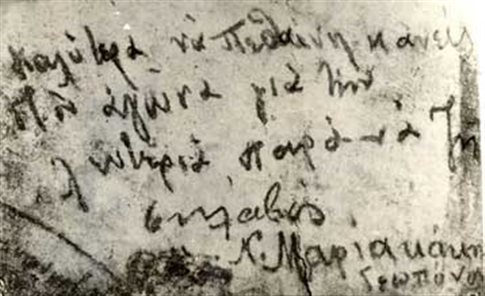 καλύτερα νὰ πεθαίνη κανείς
στὸν ἀγῶνα γιὰ τὴν
λευτεριά, παρὰ νὰ ζῆ
σκλάβος
Ν. Μαριακάκη
Γεωπόνος